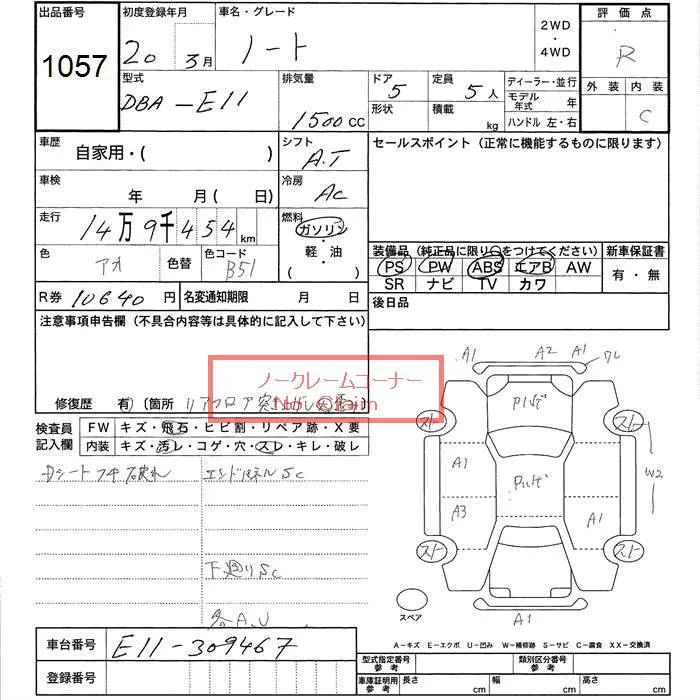 出品番号 初度登録年月 車名・グレード 2WD・4WD 評価点
1057 20 3月 ノート R
型式 排気量 ドア 5 定員 5人 ディーラー・並行 外装 内装
DBA-E11 1500cc 形状 積載 kg モデル年式 年 C
ハンドル 左・右
車歴 自家用・( ) シフト A.T セールスポイント(正常に機能するものに限ります)
車検 年 月(日) 冷房 AC
走行 14万9千454km 燃料 ガソリン・軽・油 ( )
色 アオ 色替 色コード B51
装備品(純正品に限り○をつけてください) 新車保証書
PS PW ABS エアB AW 有・無
SR ナビ TV カワ
R券 10640円 名変通知期限 月 日 後日品
注意事項申告欄(不具合内容等は具体的に記入して下さい)
ノークレームコーナー
No Claim
修復歴 有)(箇所 リアフロア突
検査員記入欄 FW キズ・飛石・ヒビ割・リペア跡・X要
内装 キズ・汚レ・コゲ・穴・スレ・キレ・破レ
エンドパネルSC
下廻りSC
各A、U
A1 A2 A1 ワレ
スト スト
A1 W2
A3 A1
スト スト
スペア A1
A-キズ E-エクボ U-凹み W-補修跡 S-サビ C-腐食 XX-交換済
車台番号 E11-309467
登録番号
型式指定番号 参考 類別区分番号 参考
車庫証明用 参考 長さ cm 幅 cm 高さ cm